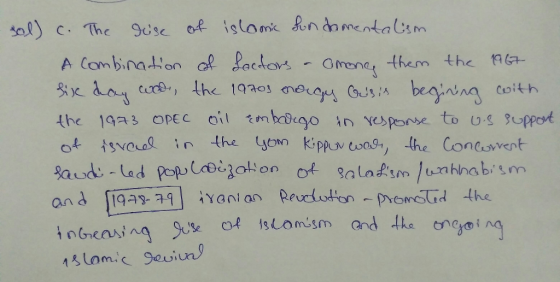 sol) c. The rise of islamic fundamentalism
A Combination of factors - among them the 1967
six day war, the 1970s energy Crisis begining with
the 1973 OPEC oil embargo in response to U.S support
of israel in the yom kippur war, the Concurrent
Saudi-led popularization of salafism/wahhabism
and 1978-79 iranian Revolution - promoted the
increasing rise of islamism and the ongoing
islamic revival